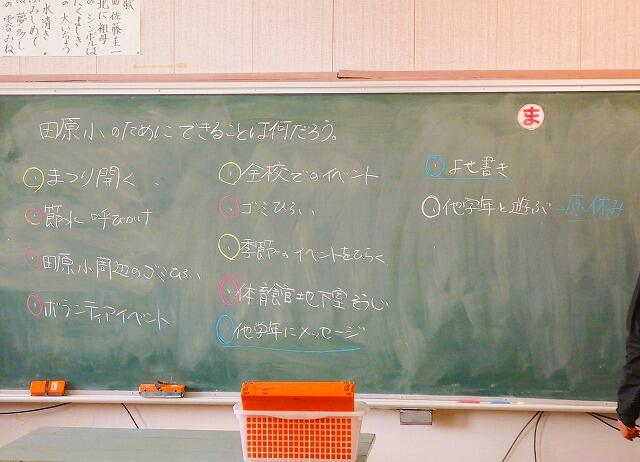 田原小のためにできることは何だろう。
ま
まつり開く
節水呼びかけ
田原小周辺のゴミひろい
ボランティアイベント
全校でのイベント
ゴミひろい
季節のイベントをひらく
体育館地下室そうじ
他学年にメッセージ
よせ書き
他学年と遊ぶ 昼休み
佐藤圭一
北に祖母
のシンボルは
の大いちょう
水清き
ふみしめて
は夢多し
の雲のみね